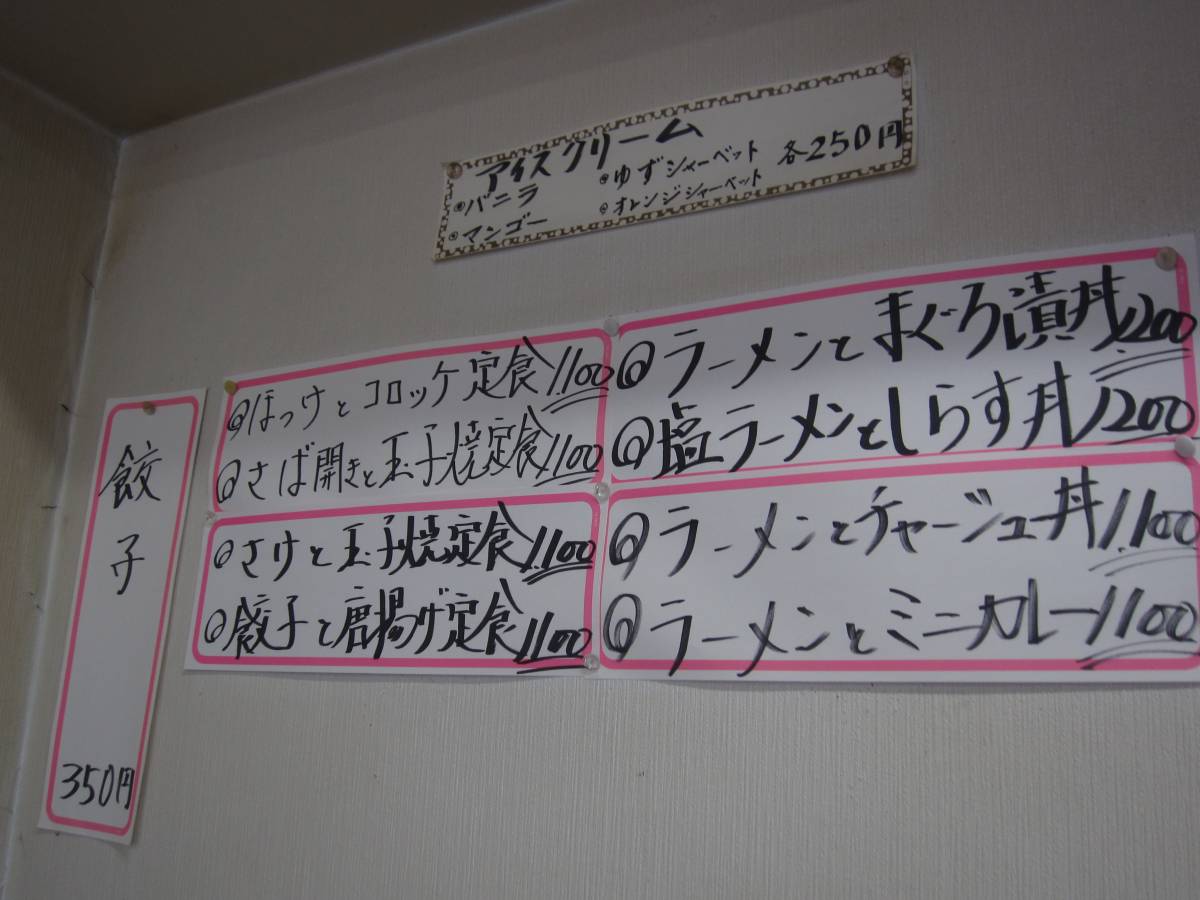 アイスクリーム
◎バニラ ◎ゆずシャーベット 各250円
◎マンゴー ◎オレンジシャーベット
◎ほっけとコロッケ定食 1,100
◎さば開きと玉子焼定食 1,100
◎ラーメンとまぐろ漬丼 1,200
◎塩ラーメンとしらす丼 1200
◎さけと玉子焼定食 1,100
◎餃子と唐揚げ定食 1,100
◎ラーメンとチャーシュー丼 1,100
◎ラーメンとミニカレー 1100
餃子
350円